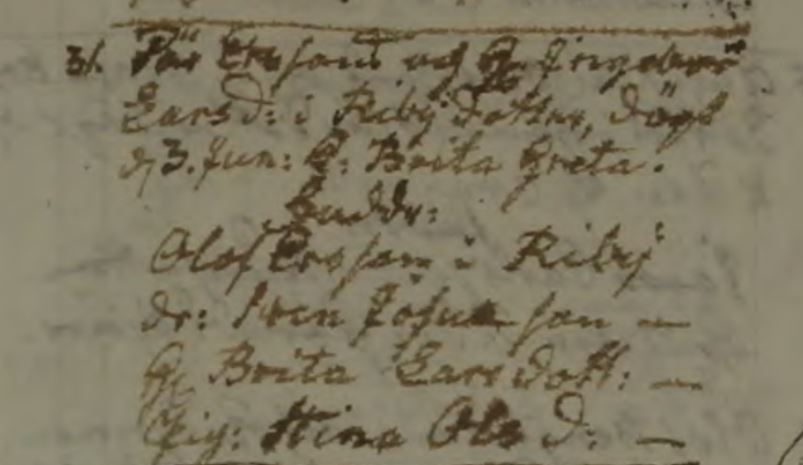 31. Pär Ersons och H. Ingebor
Larsd: i Riby dotter, döpt
d, 3. Jun: N: Brita Greta.
Faddr:
Olof Ersson i Riby
dr: Sven Josua son —
H. Brita Lars dott: —
Pig: Stina Ols d: —